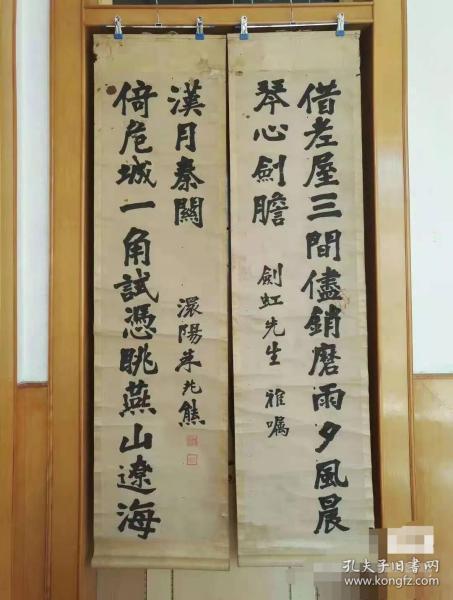 借老屋三間儘銷磨雨夕風晨
琴心劍膽
劍虹先生 雅囑
倚危城一角試憑眺燕山遼海
漢月秦關
濴陽朱兆熊
孔夫子旧书网
www.kongfz.com